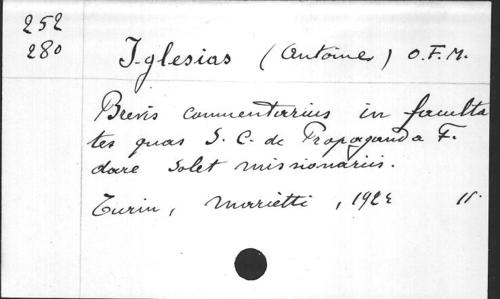 252
280
Iglesias (Antoine) O.F.M.
Brevis commentarius in faculta
tes quas S. C. de Propaganda F.
dare solet missionariis.
Turin, Marietti, 1924